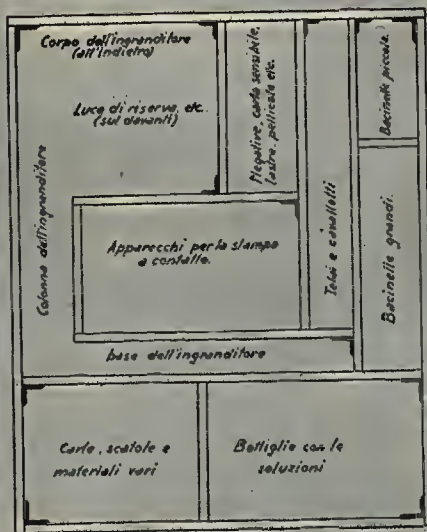 Corpo dell'ingranditore
(all'indietro)
Luce di riserva, etc.
(sul davanti)
Colonna dell'ingranditore
Negative, carta sensibile,
lastre, pellicole etc.
Telai e cavalletti
Bacinelle piccole.
Bacinelle grandi.
Apparecchi per la stampa
a contatto.
base dell'ingranditore
Carte, scatole e
materiali vari
Bottiglie con le
soluzioni